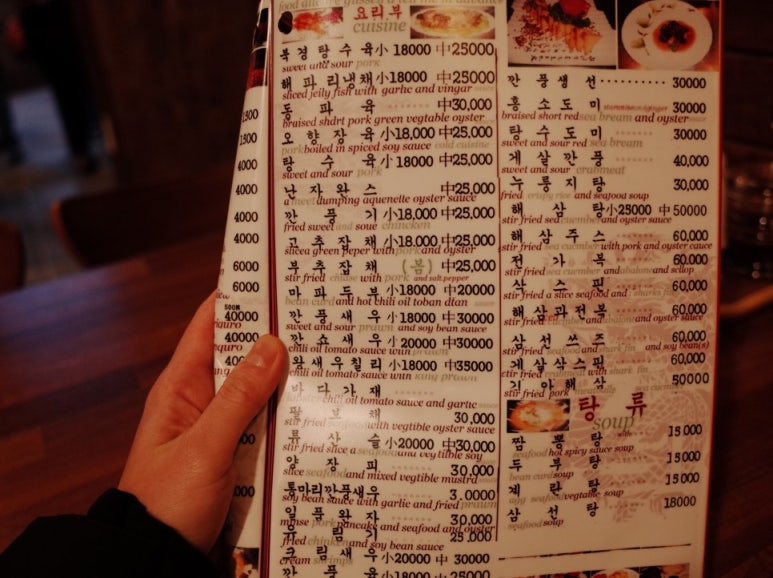 요리부
cuisine
북경탕수육 小 18000 中25000
sweet and sour pork
해파리냉채 小18000 中25000
sliced jelly fish with garlic and vingar
동파육 中30,000
braised shdrt pork green vegtable oyster
오향장육 小18,000 中25,000
pork boiled in spiced soy sauce cold cuisine
탕수육 小 18000 中25,000
sweet and sour pork
난자완스 中25,000
a meet dumping aquenelle oyster sauce
깐풍기 小18,000 中25,000
fried sweet and soue chincken
고추잡채 小18,000 中25,000
slicea green peper with pork and oyster
부추잡채 (봄) 中25,000
stir fried chiuse with pork and salt.pepper
마파두부 小18000 中20000
bean curd and hot chili oil toban dfan
깐풍새우 小18000 中30000
sweet and sour prawn and soy bean sauce
깐쇼새우 小20000 中30000
chili oil tomato sauce with prawn
왕새우칠리 小18000 中35000
chili oil tomato sauce with king prawn
바다가재
chili oil tomato sauce and garlic
팔보채 30,000
stir fried seafood with vegtible oyster sauce
류산슬 小20000 中30,000
stir fried slice a seafood and vegtible soy
양장피 30,000
slice seafood and mixed vegtible mustra
통마리깐풍새우 3.0000
soy bean sauce with garlic and fried prawn
일품완자 30,000
minse pork pancake and seafood and oyster
유림기 25.000
fried chinken and soy bean sauce
크림새우 小20000 中 30000
cream shrimps
깐풍
깐풍생선 30000
홍소도미 30000
braised short red sea bream and oyster
탕수도미 30000
sweet and sour red sea bream
게살깐풍 40,000
sweet and sour crabmeat
누룽지탕 30,000
fried crispy rice and seafood soup
해삼탕 小25000 中 50000
stir fried sea cucumber and oyster sauce
해삼주스 60,000
stir fried sea cucumber with pork and oyster cauce
전가복 60,000
stir fried sea cucmber and abalome and scllop
삭스핀 60,000
stir fried a slice seafood and sharks fin
해삼과전복 60,000
stir fried cucumbe and abalone and oyster sauce
삼선쓰즈 60,000
stir fried seafood and shark fin and soy bean(s)
게살삭스핀 60,000
stir fried crabmeat with shark fin
기아해삼 50000
stir fried pork sea cucumber
탕류
soup
짬뽕탕 15000
seafood hot spicy sauce soup
두부탕 15000
bean curd soup
계란탕 15000
agg seafood vegtable soup
삼선탕 18000
seafood soup
1300
1300
4000
4000
4000
4000
6000
6000
500M
40000
40000